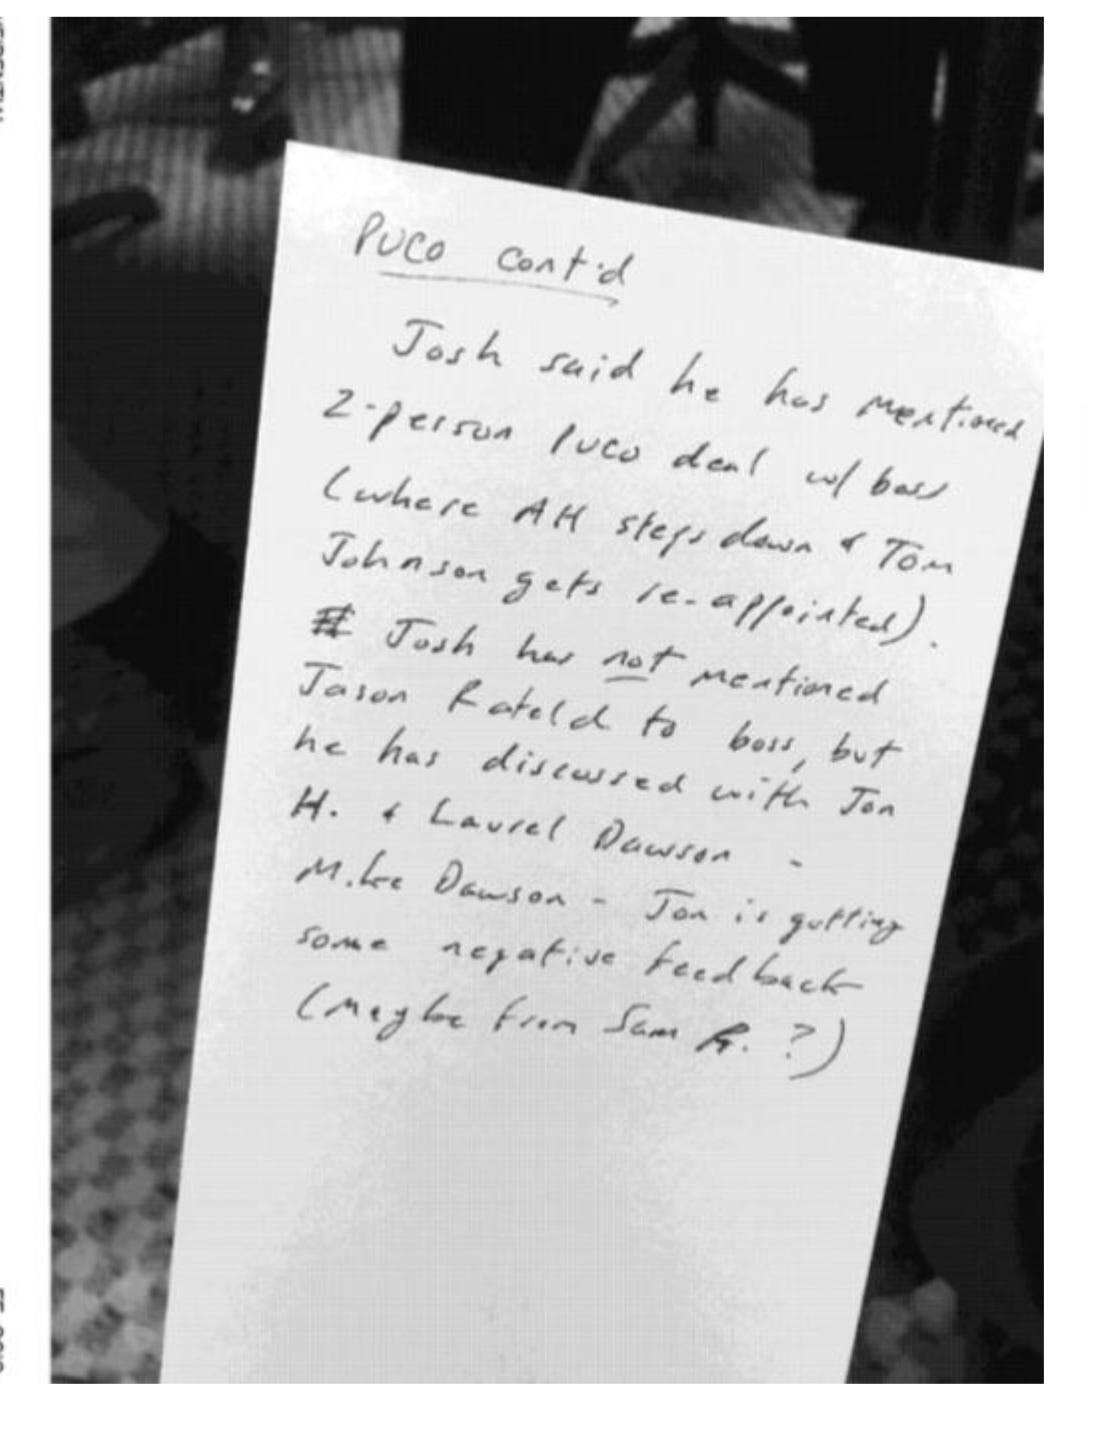 PUCO cont'd
Josh said he has mentioned
2-person PUCO deal w/ boss
(where AH steps down & Tom
Johnson gets re-appointed).
Josh has not mentioned
Jason Rafeld to boss, but
he has discussed with Jon
H. & Laurel Dawson -
Mike Dawson - Jon is getting
some negative feedback
(maybe from Sam R. ?)